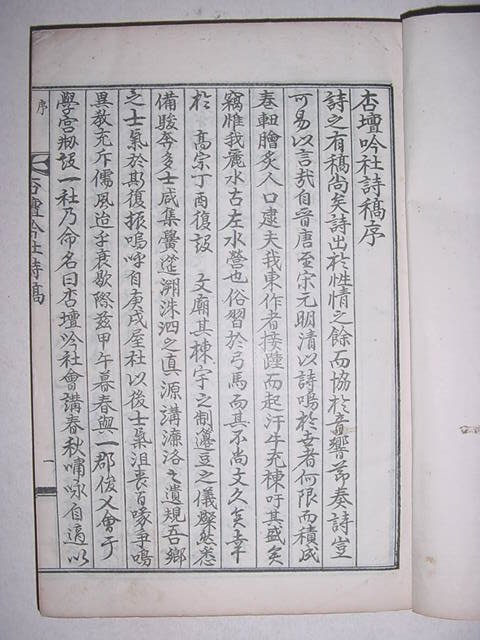 杏壇吟社詩稿序
詩之有稿尚矣詩出於性情之餘而協於音響節奏詩豈
可易以言哉自晉唐至宋元明清以詩鳴於世者何限而積成
卷軸膾炙人口逮夫我東作者接踵而起汗牛充棟吁其盛矣
竊惟我麗水古左水營也俗習於弓馬而其不尚文久矣幸
於 高宗丁酉復設 文廟其棟宇之制籩豆之儀燦然悉
備駿奔多士咸集黌筵溯洙泗之眞源講濂洛之遺規吾鄉
之士氣於斯復振嗚呼自庚戌屋社以後士氣沮喪百喙爭鳴
異敎充斥儒風迨乎衰歇際玆甲午暮春與一郡俊乂會于
學宮刱設一社乃命名曰杏壇吟社會講春秋嘯咏自適以
序
杏壇吟社詩稿
一